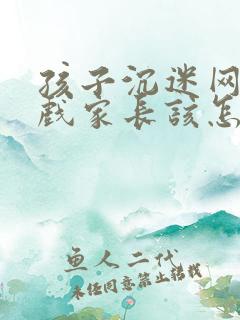 孩子沉迷网
戏家长该怎
鱼人二代
未经同意禁止转载